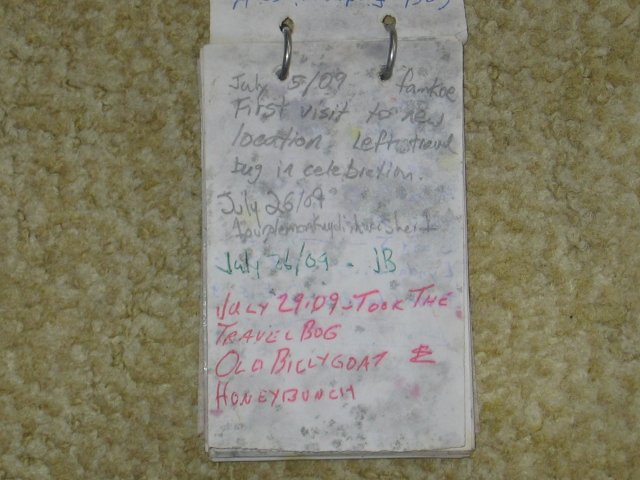 July 5/09 famkoe
First visit to new
location. Left travel
bug in celebration.
July 26/09
July 26/09 - JB
JULY 29.09 - TOOK THE
TRAVEL BOG
OLD BILLYGOAT &
HONEYBUNCH